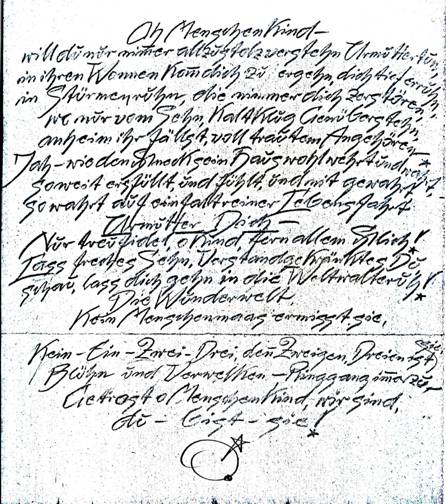 Oh Menschenkind –
will du nur nimmer allzustolz verstehn Urmuttertun,
in ihren Wonnen Komm dich zu ergehn, dich tief
in Stürmen ruhn, die nimmer dich zerstören
wo nur vom Sehn, Kaltklug Genüberstehn,
anheim ihr fällst, voll trautem Angehören*
Jah – wie den Schneck sein Haus wohl wehrt und nährt,
soweit erfüllt und fühlt, und mit gewahrt*
so wahrt auf einfalt reiner Lebensfahrt
Urmutter Dich –
Nur treu fidel, o Kind, fern allem
Lass freches Sehn, Verstandge Du
schau, lass dich gehn in die Weltwalteruh!*
Die Wunderwelt
Kein Menschenmaas ermisst sie,
Kein – Ein – Zwei – Drei, den Zweigen, Dreien ist sie
Blühn und Verwelken – Ringgang immerzu –
Getrost o Menschenkind, wir sind,
du – bist – sie!*